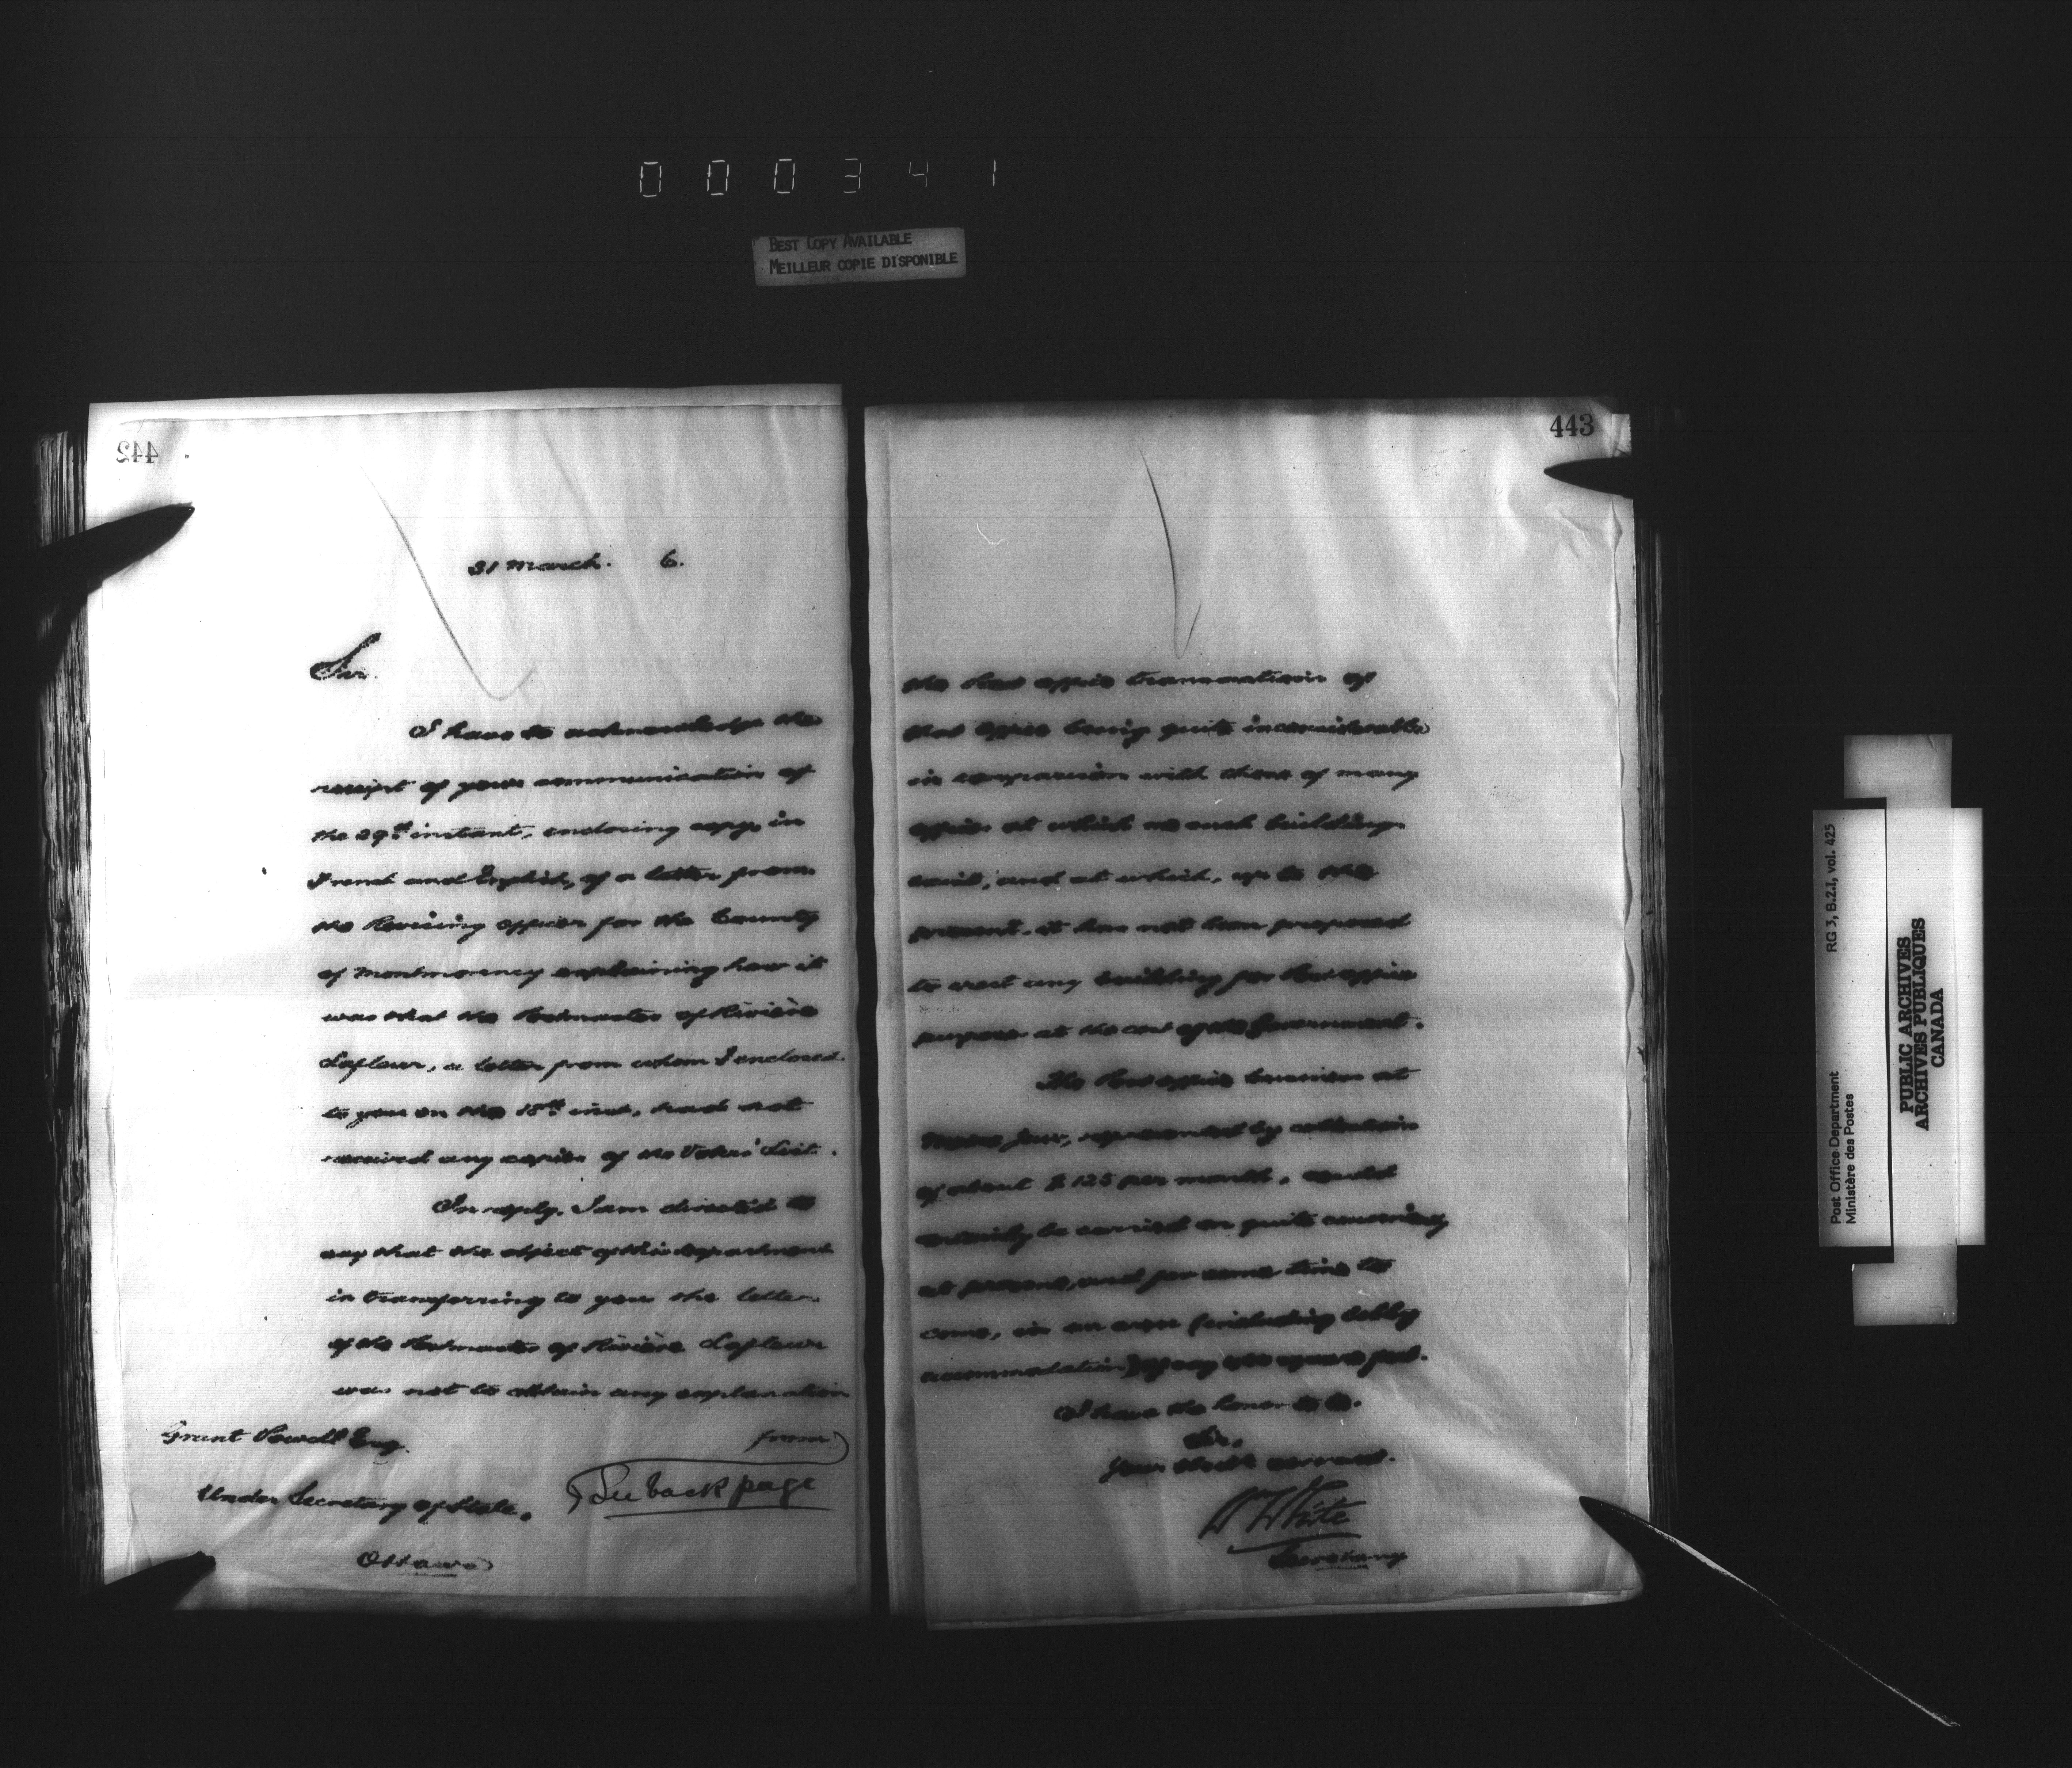 000341
BEST COPY AVAILABLE
MEILLEUR COPIE DISPONIBLE
442
31 March. 6.
Sir.
I have to acknowledge the
receipt of your communication of
the 29th instant, enclosing copy, in
French and English, of a letter from
the Revising Officer for the County
of Montmorency explaining how it
was that the Postmaster of Rivière
Lafleur, a letter from whom I enclosed
to you on the 15th inst., had not
received any copies of the Voters' List.
In reply, I am directed to
say that the object of this Department
in transferring to you the letter
of the Postmaster of Rivière Lafleur
was not to obtain any explanation
from
Grant Powell Esq.
See back page
Under Secretary of State.
Ottawa
443
the Post Office transactions of
that Office being quite inconsiderable
in comparison with those of many
offices at which no such buildings
exist, and at which, up to the
present, it has not been proposed
to erect any building for Post Office
purposes at the cost of the Government.
The Post Office business at
Moose Jaw, represented by collections
of about $125 per month, could
certainly be carried on quite
at present, and for some time to
come, in an area (including lobby
accommodation) of say square feet.
I have the honor to be.
Sir,
Your obedt servant.
Wm White
Secretary
Post Office Department RG 3, B.2.I, vol. 425
Ministère des Postes
PUBLIC ARCHIVES
ARCHIVES PUBLIQUES
CANADA